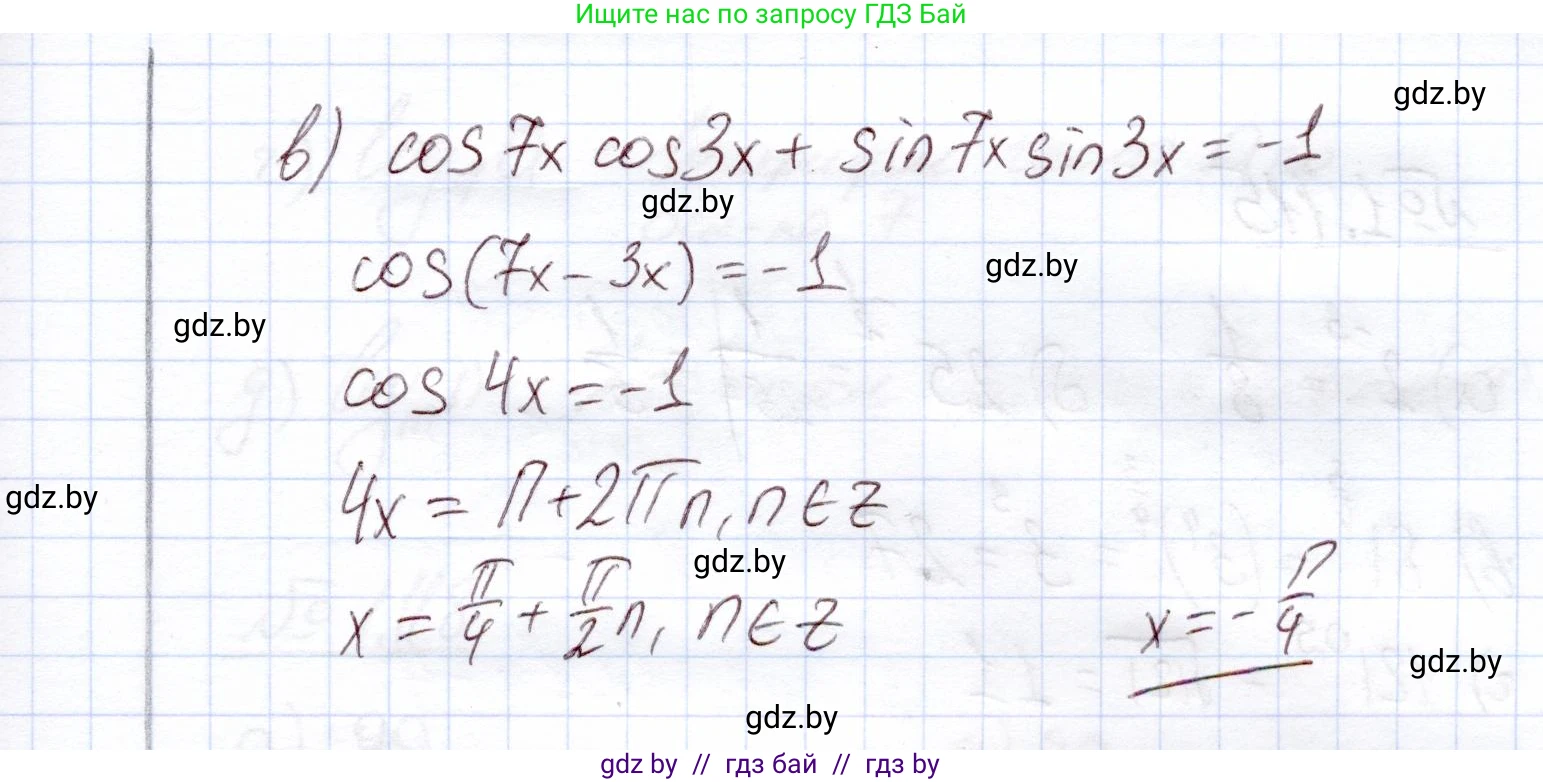 Ищите нас по запросу ГДЗ Бай
gdz.by
в) cos 7x cos 3x + sin 7x sin 3x = -1
gdz.by
cos(7x - 3x) = -1
gdz.by
gdz.by
cos 4x = -1
4x = π + 2πn, n ∈ Z
gdz.by
gdz.by
x = π/4 + π/2 n, n ∈ Z
x = - π/4
gdz.by
gdz.by
gdz by // гдз бай // гдз by